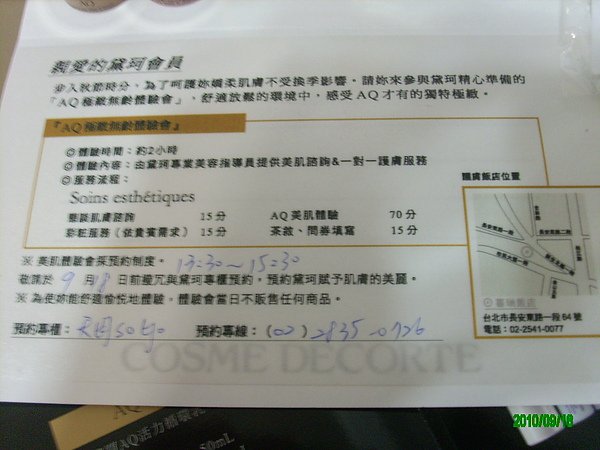 親愛的黛珂會員
步入秋節時分，為了呵護妳嬌柔肌膚不受換季影響。請妳來參與黛珂精心準備的
『AQ極緻無齡體驗會』，舒適放鬆的環境中，感受AQ才有的獨特極緻。
『AQ極緻無齡體驗會』
◎體驗時間：約2小時
◎體驗內容：由黛珂專業美容指導員提供美肌諮詢&一對一護膚服務
◎服務流程：
Soins esthétiques
懇談肌膚諮詢 15分 AQ美肌體驗 70分
彩粧服務（依貴賓需求） 15分 茶敘、問卷填寫 15分
※ 美肌體驗會採預約制度。 13:30~15:30
敬請於 9 月 18 日前撥冗與黛珂專櫃預約，預約黛珂賦予肌膚的美麗。
※ 為使妳能舒適愉悅地體驗，體驗會當日不販售任何商品。
預約專櫃：天母SOGO 預約專線：(02) 2835-0726
COSME DECORTE
護膚飯店位置
長安東路一段
長安東路二段
台北市長安東路一段64號
電話：02-2541-0077
AQ
AQ活力循環乳
50mL
2010/09/18